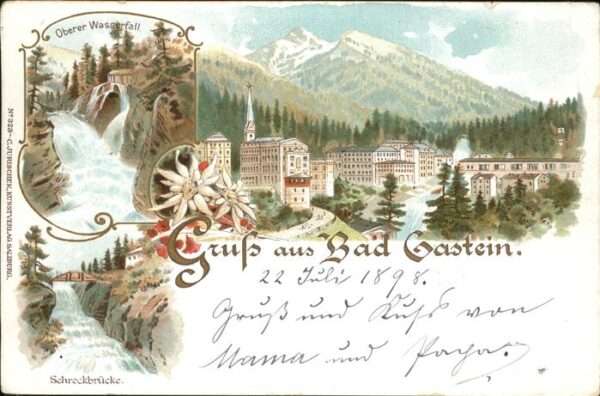 Oberer Wasserfall
No 329 – C. JURISCHEK, KUNSTVERLAG, SALZBURG.
Gruß aus Bad Gastein.
22 Juli 1898.
Gruß und Kuss von
Mama und Papa.
Schreckbrücke.